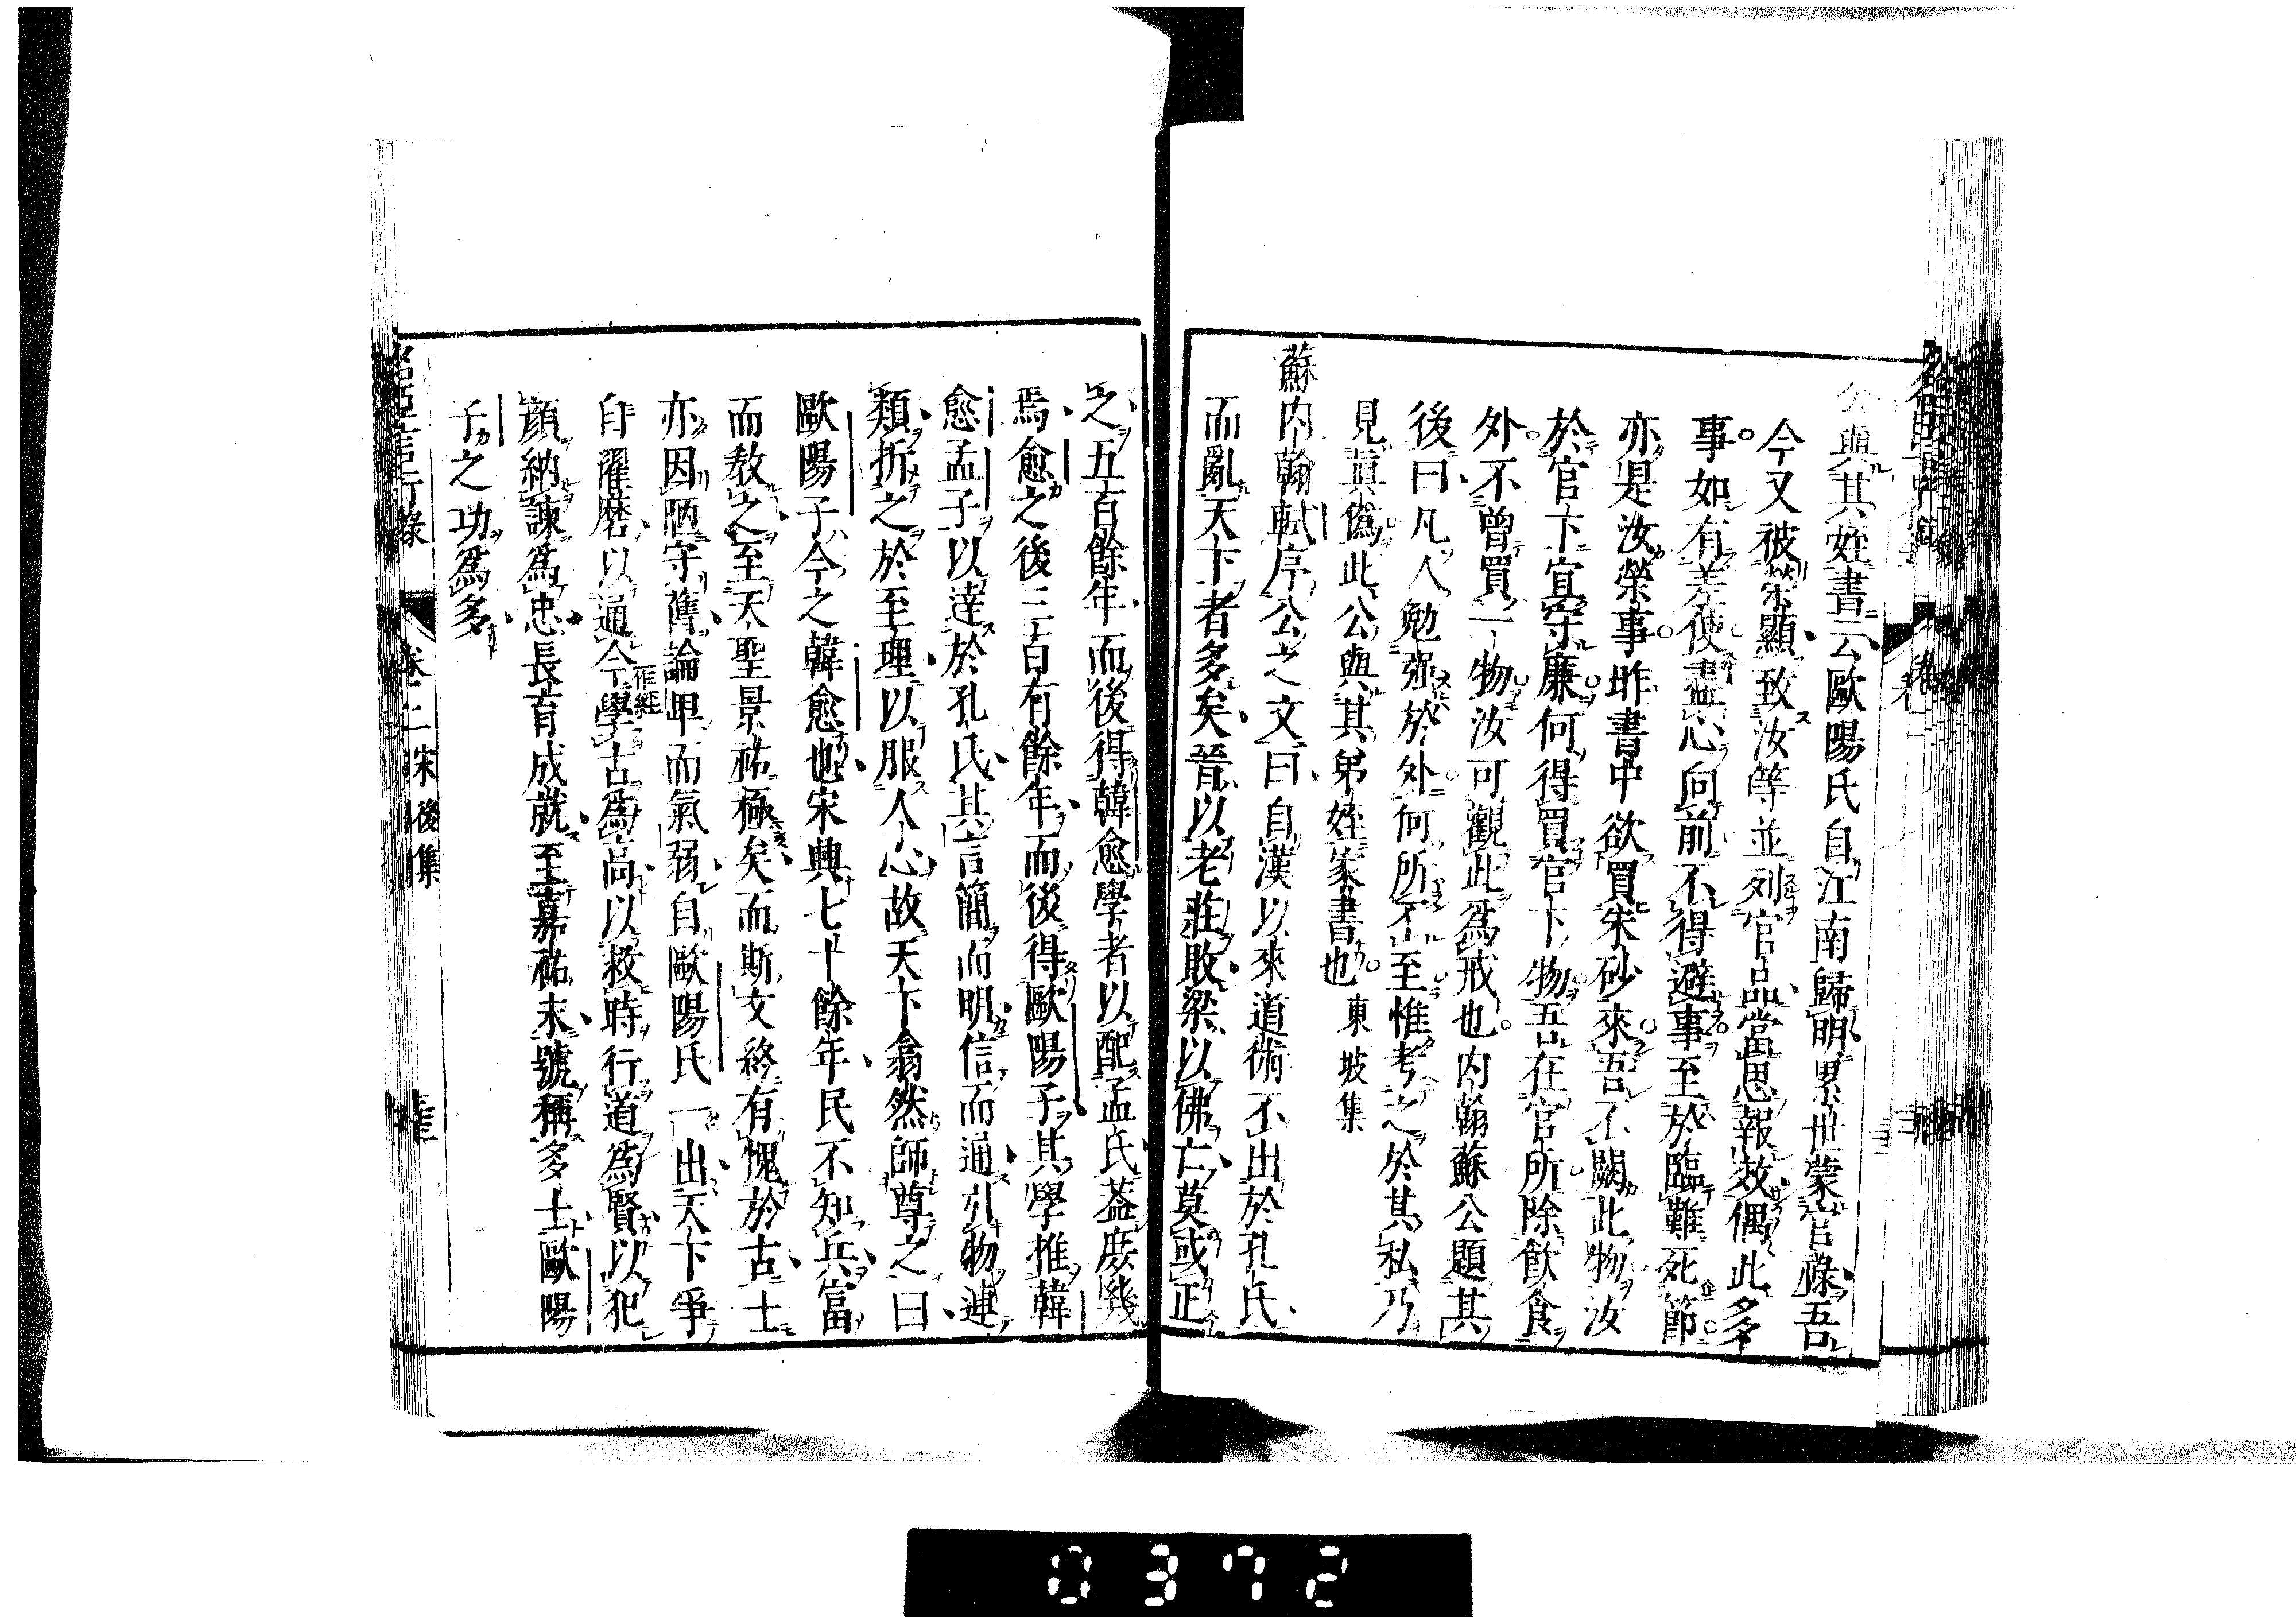 公與其姪書云歐陽氏自江南歸明累世蒙官祿吾
今又被榮顯致汝等並列官品當思報效偶此多
事如有差使盡心向前不得避事至於臨難死節
亦是汝榮事昨書中欲買朱砂來吾不闕此物汝
於官下宜守廉何得買官下物吾在官所除飲食
外不曾買一物汝可觀此爲戒也内翰蘇公題其
後曰凡人勉强於外何所不至惟考之於其私乃
見真僞此公與其弟姪家書也 東坡集
蘇内翰軾序公之文曰自漢以來道術不出於孔氏
而亂天下者多矣晉以老莊敗梁以佛亡莫或正
之五百餘年而後得韓愈學者以配孟氏蓋庶幾
焉愈之後三百有餘年而後得歐陽子其學推韓
愈孟子以達於孔氏其言簡而明信而通引物連
類折之於至理以服人心故天下翕然師尊之曰
歐陽子今之韓愈也宋興七十餘年民不知兵富
而教之至天聖景祐極矣而斯文終有愧於古士
亦因陋守舊論卑而氣弱自歐陽氏一出天下爭
自濯磨以通今學古爲高以救時行道爲賢以犯
一作經
顔納諫爲忠長育成就至嘉祐末號稱多士歐陽
子之功爲多
言行錄 卷二 宋 後集
0372